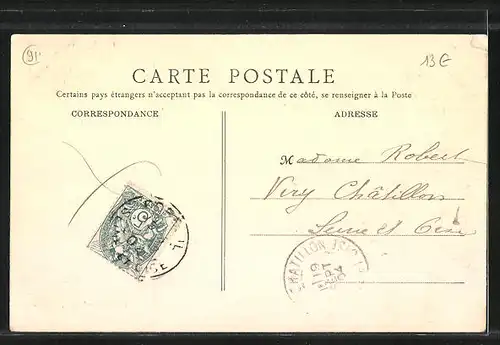 91
13 €
CARTE POSTALE
Certains pays étrangers n'acceptant pas la correspondance de ce côté, se renseigner à la Poste
CORRESPONDANCE
ADRESSE
Madame Robert
Viry Châtillon
Seine et Oise
CHATILLON
19
SEPT
04